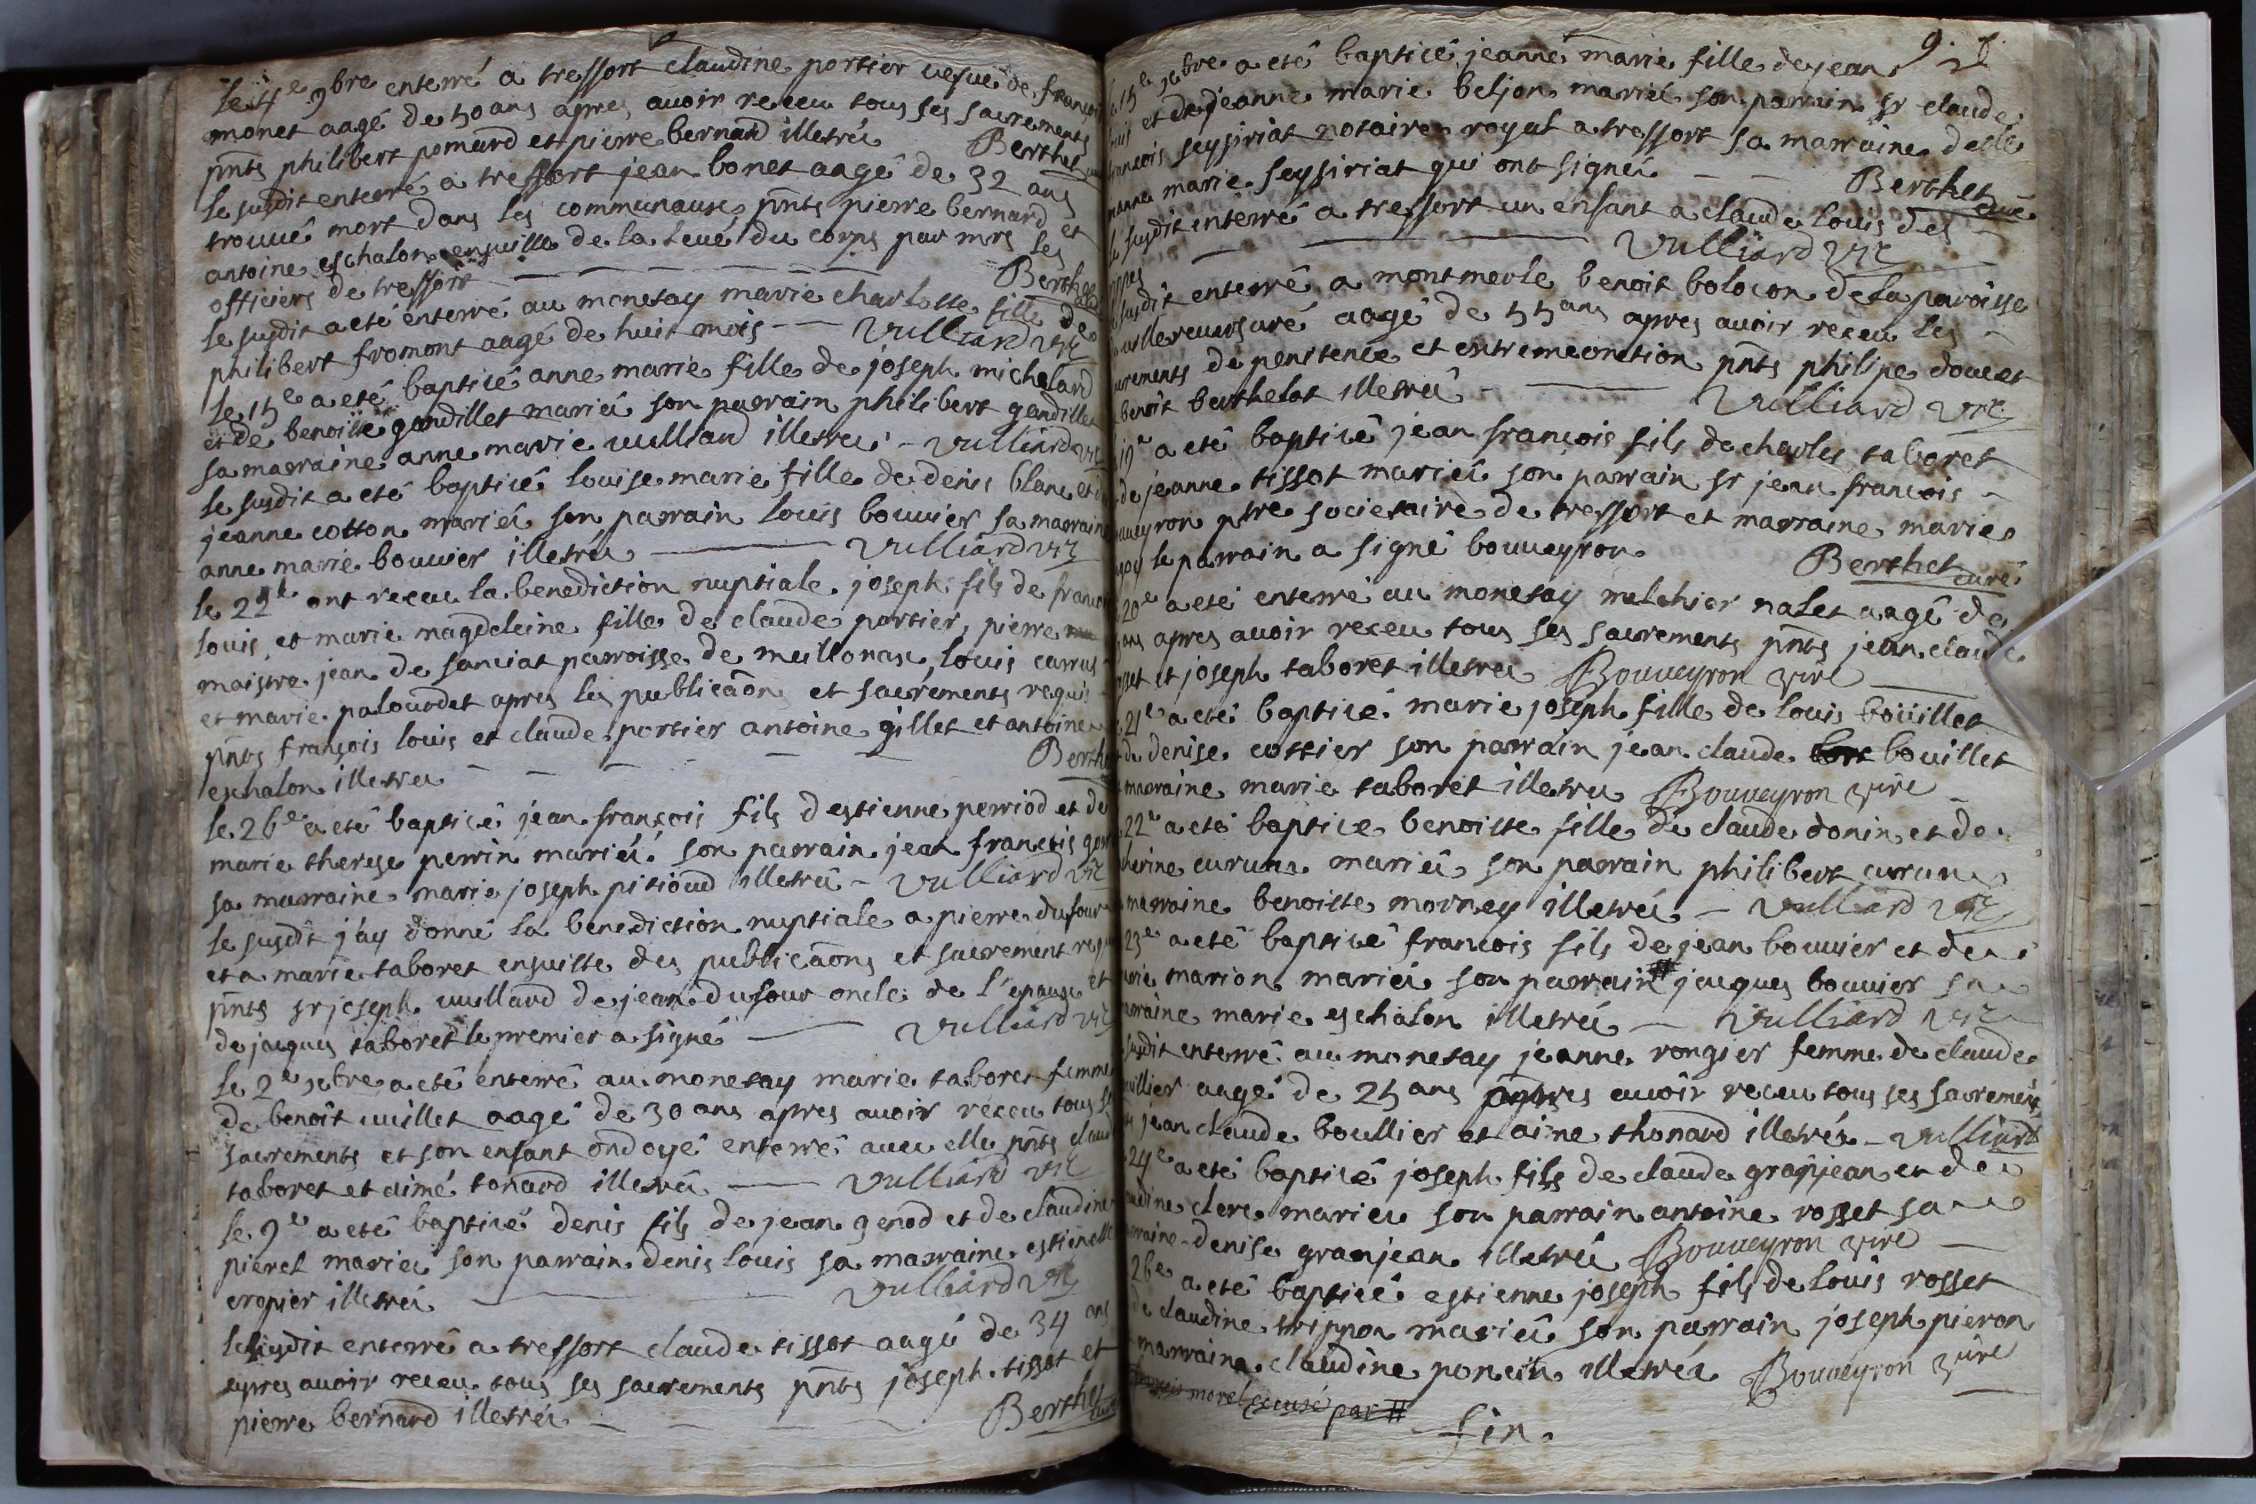 Le 4e 9bre enterré a tressort claudine portier vefue de françois
monet aagé de 50 ans apres avoir receu tous ses sacrements
pnts philibert pomard et pierre bernard illetréz Berthet
le susdit enterré a tressort jean bonet aagé de 32 ans
trouué mort dans les communaux pnts pierre bernard et
antoine eschalon ensuitte de la leué du corps par mrs les
officiers de tressort Berthet
le susdit a eté enterré au monetay marie charlotte fille de
philibert fromont aagé de huit mois Vulliard vic
le 15e a eté baptisé anne marie fille de joseph michelard
et de benoitte gandillet mariéz son parrain philibert gandillet
sa marraine anne marie vulliard illetréz Vulliard vic
le susdit a eté baptisé louise marie fille de denis blanc et de
jeanne cotton mariéz son parrain louis bouvier sa marraine
anne marie bouvier illetréz Vulliard vic
le 22e ont receu la benediction nuptiale joseph fils de françois
louis et marie magdeleine fille de claude portier, pierre
maistre jean de sanciat parroisse de meillonax, louis carrus
et marie palourdet apres les publicaons et sacréments requis
pnts françois louis et claude portier antoine gillet et antoine
eschalon illetréz Berthet
le 26e a eté baptisé jean françois fils d'estienne perriod et de
marie therese perrin mariéz son parrain jean françois
sa marraine marie joseph pitioud illetréz Vulliard vic
le susdit j'ay donné la benediction nuptiale a pierre dufour
et a marie taboret ensuitte des publicaons et sacrement requis
pnts sr joseph vuillard de jean dufour oncle de l'epoux et
de jacques taboret le premier a signé Vulliard vic
le 2e xbre a eté enterré au monetay marie taboret femme
de benoit vuillet aagé de 30 ans apres avoir receu tous ses
sacrements et son enfant ondoyé enterré avec elle pnts claude
taboret et aimé tonard illetréz Vulliard vic
le 9e a eté baptisé denis fils de jean genod et de claudine
pieret mariéz son parrain denis louis sa marraine estienette
cropier illetréz Vulliard vic
le susdit enterré a tressort claude tissot aagé de 34 ans
apres avoir receu tous ses sacrements pnts joseph tissot et
pierre bernard illetréz Berthet
9.
15e xbre a eté baptisé jeanne marie fille de jean
et de jeanne marie beljon mariéz son parrain sr claude
françois seysiriat notaire royal a tressort sa marraine delle
marie seysiriat qui ont signéz Berthet curé
le susdit enterré a tressort un enfant a claude louis des
Vulliard vic
susdit enterré a montmerle benoit bolocon de la paroisse
aagé de 55 ans apres avoir receu les
sacrements de penitence et extremeonction pnts philipe doucet
benoit berthelot illetréz Vulliard vic
19e a eté baptisé jean françois fils de charles taboret
de jeanne tissot mariéz son parrain sr jean françois
bouveyron ptre societaire de tressort et marraine marie
le parrain a signé bouveyron Berthet curé
20e a eté enterré au monetay melchior nalet aagé de
ans apres avoir receu tous ses sacrements pnts jean claude
et joseph taboret illetréz Bouveyron vire
21e a eté baptisé marie joseph fille de louis boüillet
de denise cottier son parrain jean claude bouillet
marraine marie taboret illetréz Bouveyron vire
22e a eté baptisé benoitte fille de claude donin et de
curunx mariéz son parrain philibert curunx
marraine benoitte morney illetréz Vulliard vic
23e a eté baptisé françois fils de jean bouvier et de
marion mariéz son parrain # jacques bouvier sa
marraine marie eschalon illetréz Vulliard vic
susdit enterré au monetay jeanne rongier femme de claude
aagé de 25 ans apres avoir receu tous ses sacrements
jean claude boullier et aimé thonard illetréz Vulliard
24e a eté baptisé joseph fils de claude granjean et de
clerc mariéz son parrain antoine rosset sa
marraine denise granjean illetréz Bouveyron vire
26e a eté baptisé estienne joseph fils de louis rosset
de claudine trippoz mariéz son parrain joseph pieron
marraine claudine poncin illetréz Bouveyron vire
morel excusé par #
fin.